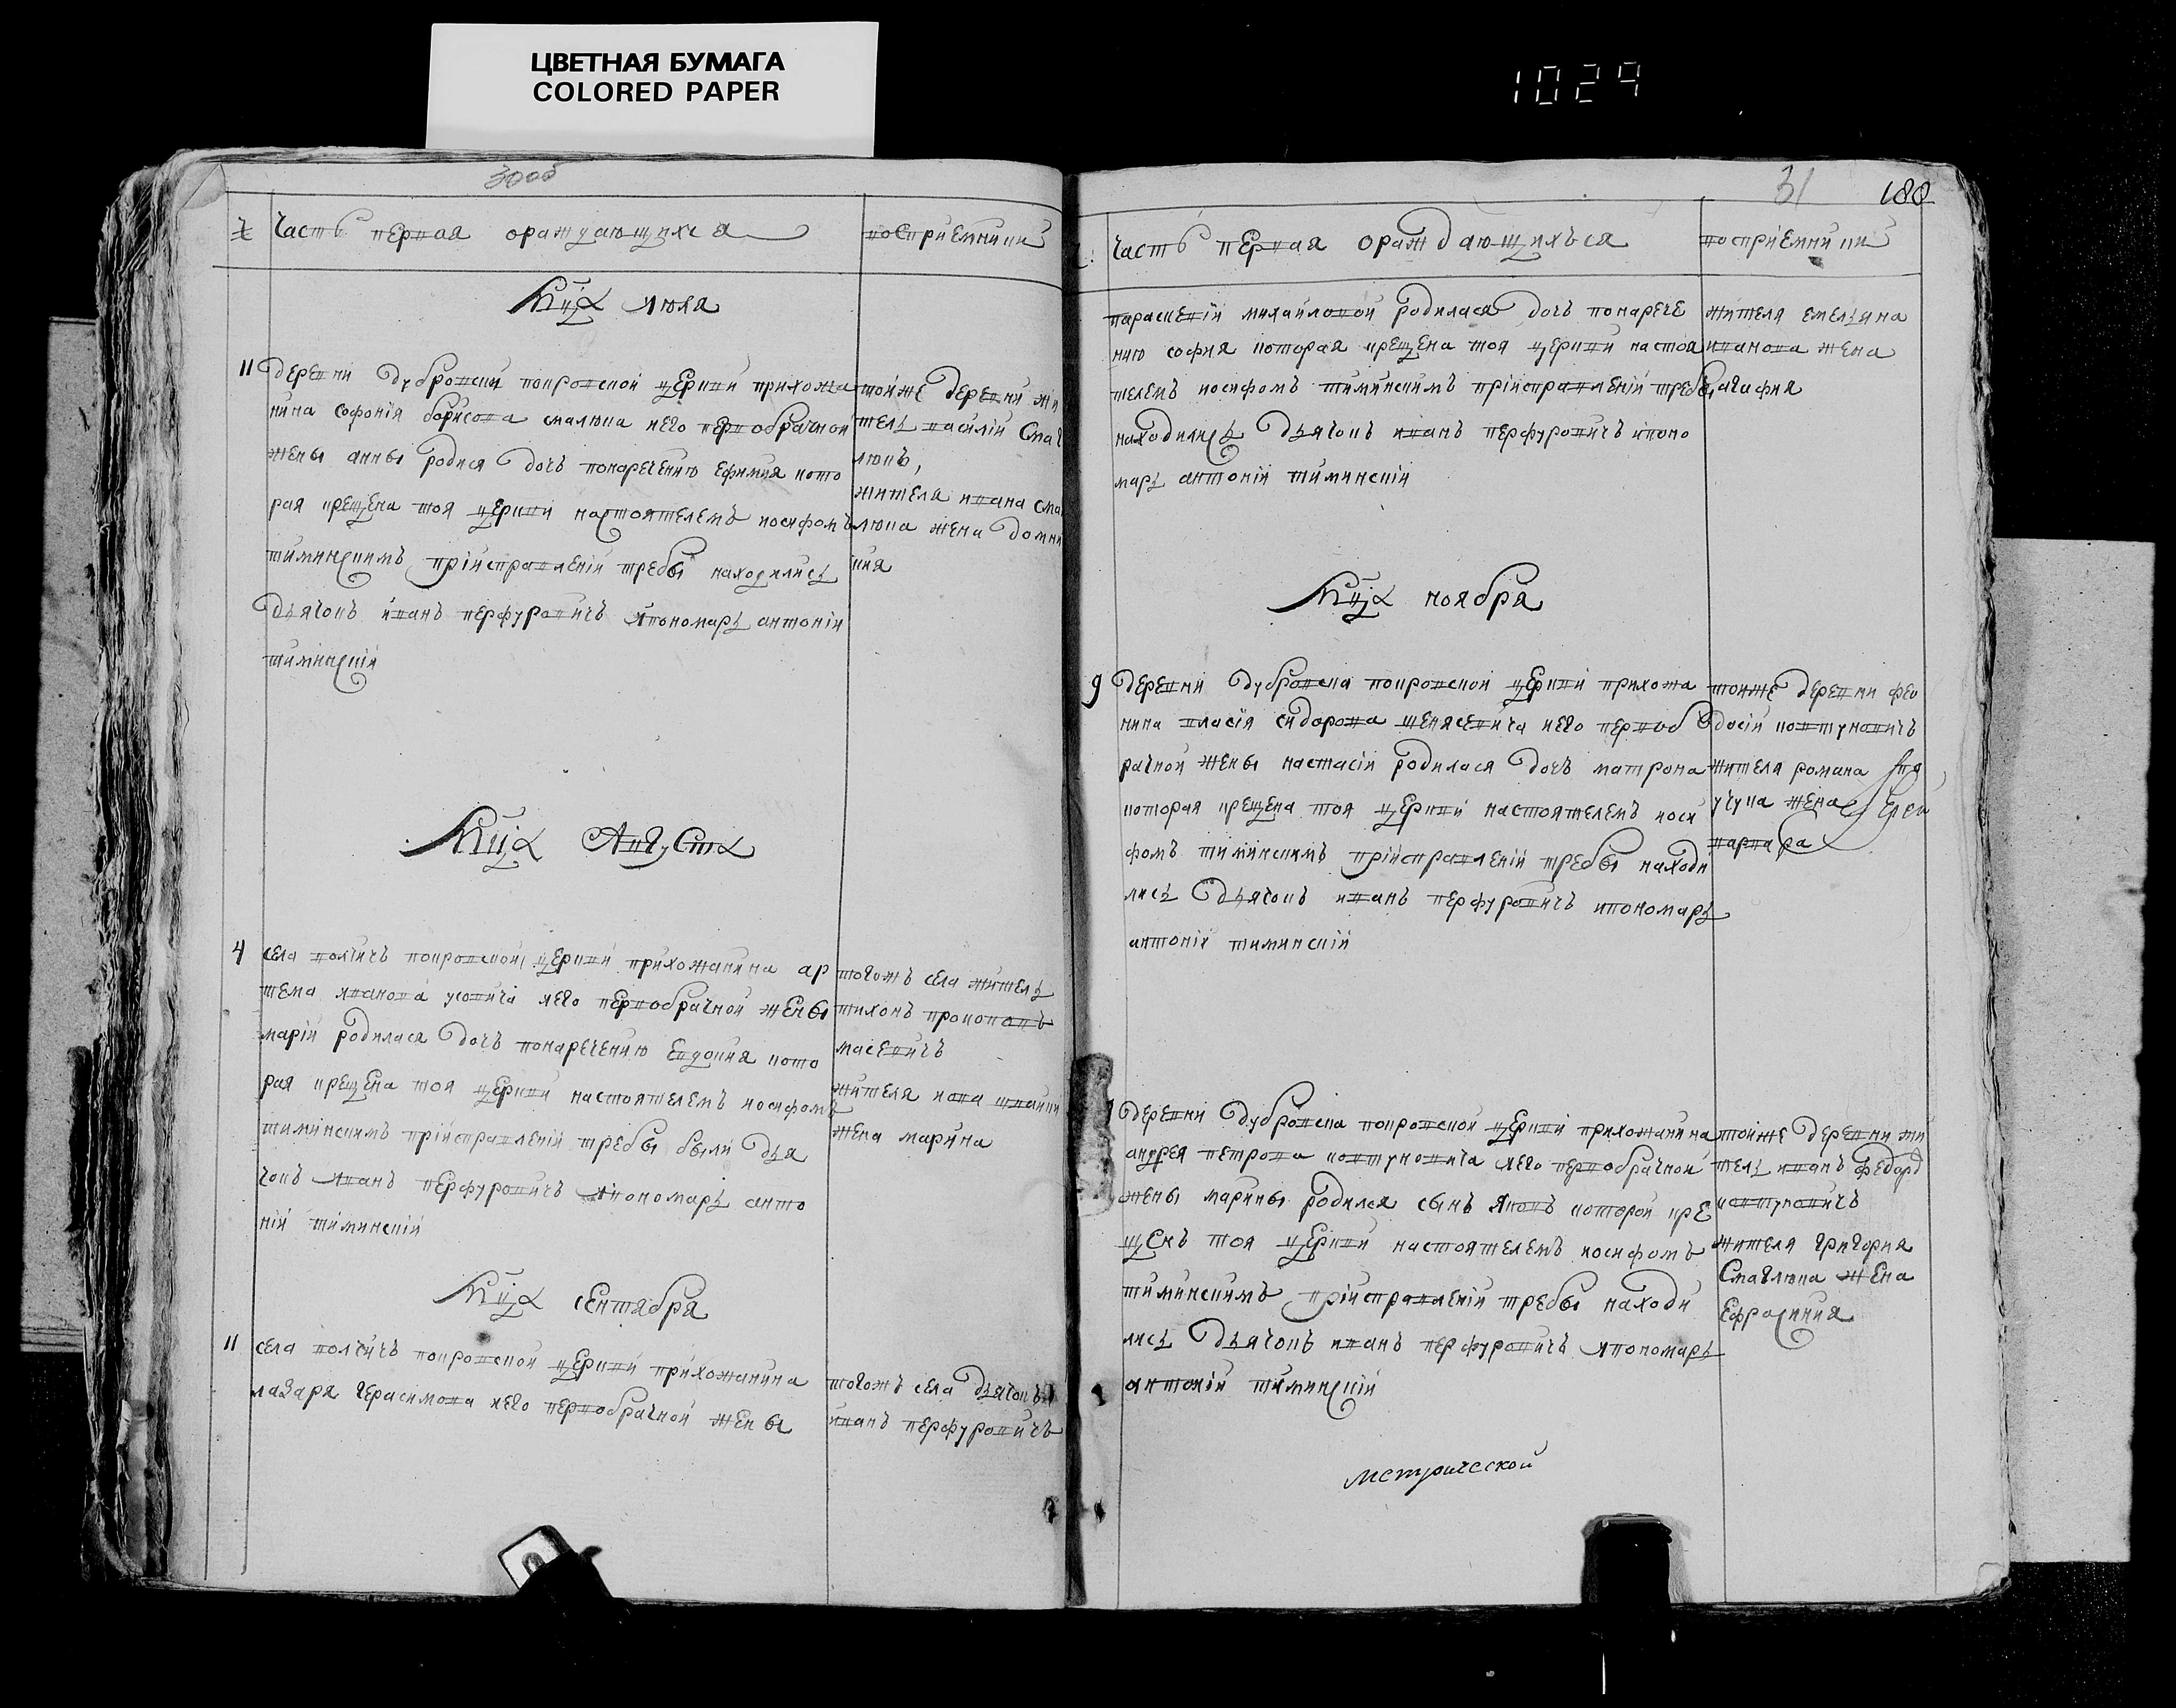 ЦВЕТНАЯ БУМАГА
COLORED PAPER
1029
30об
Часть первая о раждающихся
восприемники
Мца Июля
11 деревни Дубровски покровской церкви прихожа
нина софонія борисова смалюка иего первобрачной
жены анны родися дочь понаречению ефимия кото
рая крещена тоя церкви настоятелемъ иосифомъ
тиминскимъ приисправленій требы находились
дьячокъ иванъ перфуровичъ ипономарь антоній
тиминскій
тойже деревни жи
тель василій Смаг
люкъ,
жителя ивана сма
люка жена домни
кия
Мца Августа
4 села волчичъ покровской церкви прихожанина ар
тема иванова иего первобрачной жены
маріи родилася дочь понаречению Евдокия кото
рая крещена тоя церкви настоятелемъ иосифомъ
тиминскимъ приисправленій требы были дья
чокъ иванъ перфуровичъ ипономарь анто
ній тиминскій
тогожъ села житель
тихонъ прокоповъ
масевичъ
жителя
жена марина
Мца сентября
11 села волчичъ покровской церкви прихожанина
лазаря герасимова иего первобрачной жены
тогожъ села дьячокъ
иванъ перфуровичъ
31 188
часть первая о раждающихъся
восприемники
параскевіи михайловой родилася дочь понарече
нию софия которая крещена тоя церкви настоя
телемъ иосифомъ тиминскимъ приисправленій требы
находились дьячокъ иванъ перфуровичъ ипоно
марь антоній тиминскій
жителя емельяна
иванова жена
агафия
Мца ноября
9 деревни Дубровска покровской церкви прихожа
нина власія сидорова иего первоб
рачной жены настасіи родилася дочь матрона
которая крещена тоя церкви настоятелемъ иоси
фомъ тиминскимъ приисправленій требы находи
лись дьячокъ иванъ перфуровичъ ипономарь
антоній тиминскій
тойже деревни фео
досій ковтуновичъ
жителя романа
жена
варвара
деревни Дубровска покровской церкви прихожанина
андрея петрова ковтуновича иего первобрачной
жены марины родился сынъ яковъ которой кре
щенъ тоя церкви настоятелемъ иосифомъ
тиминскимъ приисправленій требы находи
лись дьячокъ иванъ перфуровичъ ипономарь
антоній тиминскій
тойже деревни жи
тель иванъ федоръ
ковтуновичъ
жителя григория
Смаглюка жена
Ефросиния
метрической